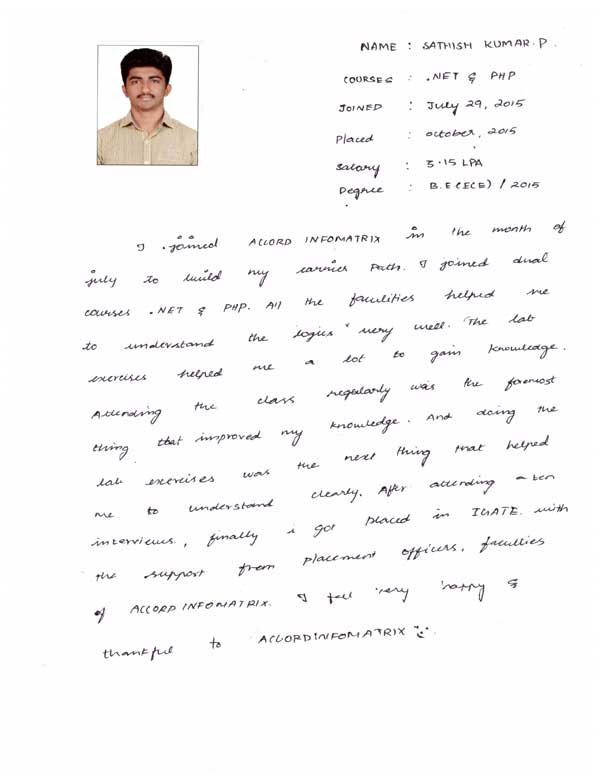 NAME : SATHISH KUMAR.P.
COURSES : .NET & PHP
JOINED : July 29, 2015
Placed : october, 2015
Salary : 3.15 LPA
Degree : B.E (ECE) / 2015
I joined ACCORD INFOMATRIX in the month of
july to build my carrier Path. I joined dual
courses .NET & PHP. All the faculities helped me
to understand the logics very well. The lab
exercises helped me a lot to gain knowledge.
Attending the class regularly was the foremost
thing that improved my knowledge. And doing the
lab exercises was the next thing that helped
me to understand clearly. After attending a ten
interviews, finally i got placed in IGATE with
the support from placement officers, faculties
of ACCORD INFOMATRIX. I feel very happy &
thankful to ACCORDINFOMATRIX